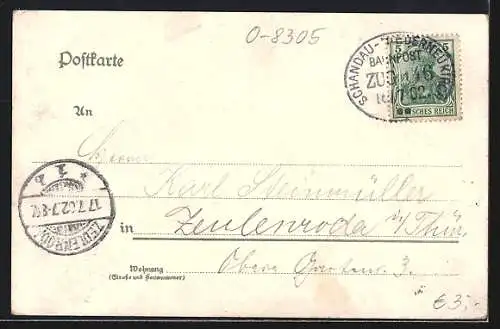 O-8305
Postkarte
SCHANDAU-NIEDERNEUKIRCH
BAHNPOST
ZUG 16
7 02
5 5
DEUTSCHES REICH
An
Herrn
Karl Steinmüller
17.7.02.7-8V.
ZEULENRODA
in Zeulenroda i/Thür.
Wohnung
(Straße und Hausnummer)
Obere Gartenstr. 3.
€3,-